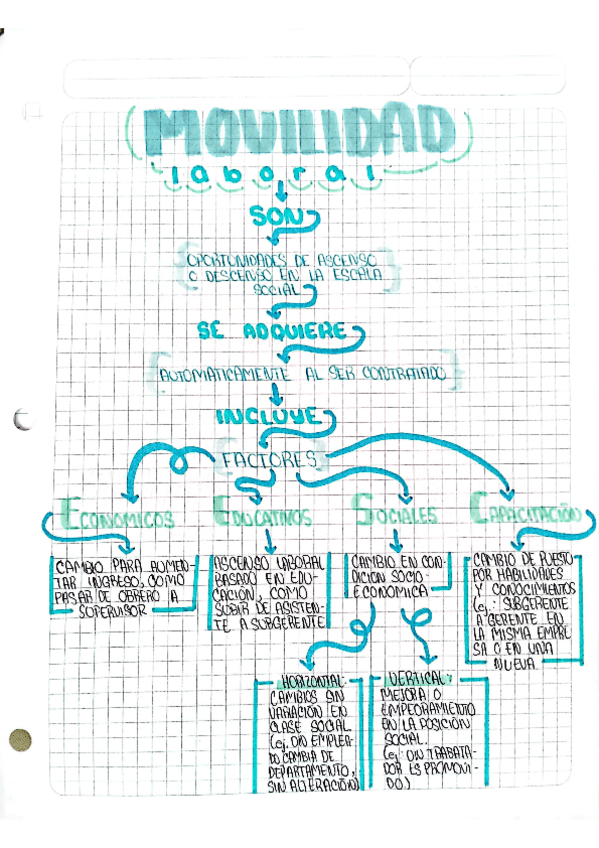 MOVILIDAD
laboral
SON
OPORTUNIDADES DE ASCENSO
O DESCENSO EN LA ESCALA
SOCIAL
SE ADQUIERE
AUTOMATICAMENTE AL SER CONTRATADO
INCLUYE
FACTORES
ECONOMICOS
EDUCATIVOS
SOCIALES
CAPACITACIÓN
CAMBIO PARA AUMEN-
TAR INGRESO, COMO
PASAR DE OBRERO A
SUPERVISOR
ASCENSO LABORAL
BASADO EN EDU-
CACIÓN, COMO
SUBIR DE ASISTEN-
TE A SUBGERENTE
CAMBIO EN CON-
DICION SOCIO-
ECONOMICA
CAMBIO DE PUESTO
POR HABILIDADES
Y CONOCIMIENTOS
(ej.: SUBGERENTE
A GERENTE EN
LA MISMA EMPRE
SA O EN UNA
NUEVA.
HORIZONTAL:
CAMBIOS SIN
VARIACIÓN EN
CLASE SOCIAL
(ej. UN EMPLEA-
DO CAMBIA DE
DEPARTAMENTO,
SIN ALTERACIÓN)
VERTICAL:
MEJORA O
EMPEORAMIENTO
EN LA POSICIÓN
SOCIAL.
(ej: UN TRABAJA-
DOR ES PROMOVI-
DO)